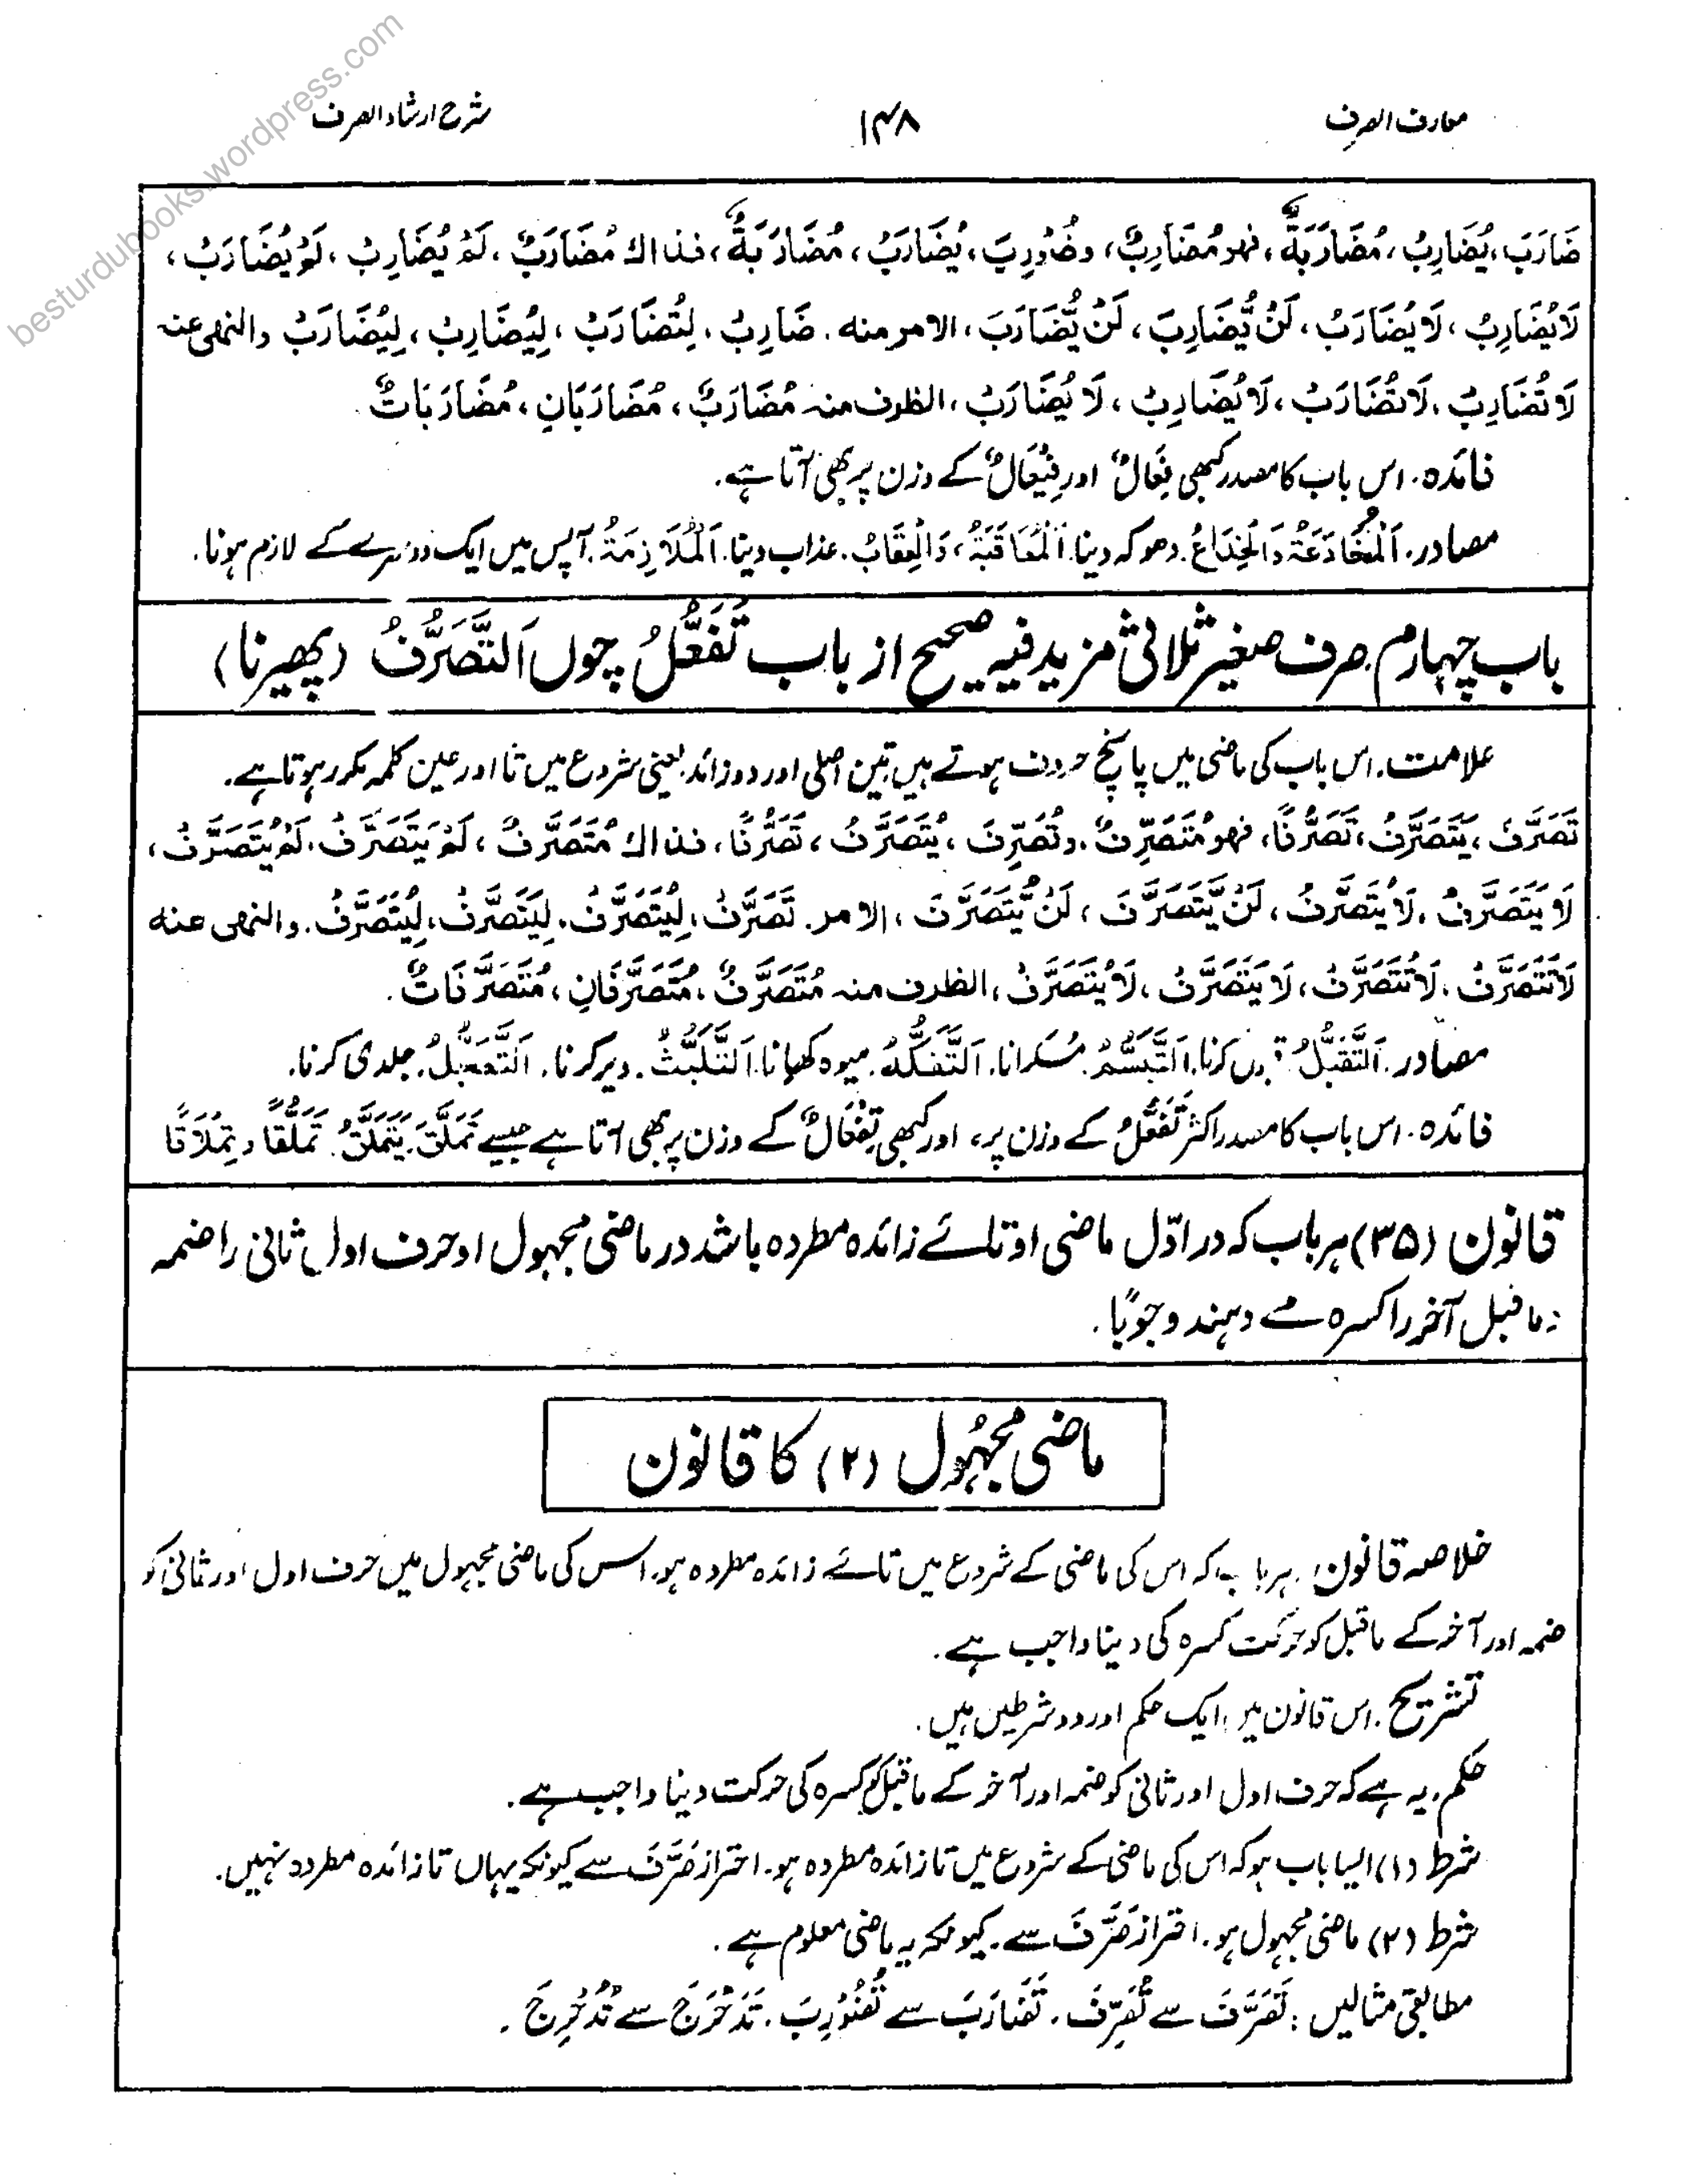 معارف الصرف
۱۴۸
شرح ارشاد الصرف
besturdubooks.wordpress.com
ضَارَبَ، يُضَارِبُ، مُضَارَبَةً، فهو مُضَارِبٌ، وضُوْرِبَ، يُضَارَبُ، مُضَارَبَةً، فذاك مُضَارَبٌ، لَمْ يُضَارِبْ، لَمْ يُضَارَبْ،
لَا يُضَارِبُ، لَا يُضَارَبُ، لَنْ يُّضَارِبَ، لَنْ يُّضَارَبَ، الامر منه. ضَارِبْ، لِتُضَارَبْ، لِيُضَارِبْ، لِيُضَارَبْ والنهى عنه
لَا تُضَارِبْ، لَا تُضَارَبْ، لَا يُضَارِبْ، لَا يُضَارَبْ، الظرف منه مُضَارَبٌ، مُضَارَبَانِ، مُضَارَبَاتٌ.
فائدہ۔ اس باب کا مصدر کبھی فِعَالٌ اور فِيْعَالٌ کے وزن پر بھی آتا ہے۔
مصادر۔ اَلْمُخَادَعَةُ وَالْخِدَاعُ۔ دھوکہ دینا۔ اَلْمُعَاقَبَةُ، وَالْعِقَابُ۔ عذاب دینا۔ اَلْمُلَازِمَةُ۔ آپس میں ایک دوسرے کے لازم ہونا۔
باب چہارم۔ صرف صغیر ثلاثی مزید فیہ صحیح از باب تَفَعُّلُ چوں اَلتَّصَرُّفُ (پھیرنا)
علامت۔ اس باب کی ماضی میں پانچ حروف ہوتے ہیں تین اصلی اور دو زائد یعنی شروع میں تا اور عین کلمہ مکرر ہوتا ہے۔
تَصَرَّفَ، يَتَصَرَّفُ، تَصَرُّفًا، فهو مُتَصَرِّفٌ، وتُصُرِّفَ، يُتَصَرَّفُ، تَصَرُّفًا، فذاك مُتَصَرَّفٌ، لَمْ يَتَصَرَّفْ، لَمْ يُتَصَرَّفْ،
لَا يَتَصَرَّفُ، لَا يُتَصَرَّفُ، لَنْ يَّتَصَرَّفَ، لَنْ يُّتَصَرَّفَ، الامر۔ تَصَرَّفْ، لِيُتَصَرَّفْ، لِيَتَصَرَّفْ، لِيُتَصَرَّفْ۔ والنهى عنه
لَا تَتَصَرَّفْ، لَا تُتَصَرَّفْ، لَا يَتَصَرَّفْ، لَا يُتَصَرَّفْ، الظرف منه مُتَصَرَّفٌ، مُتَصَرَّفَانِ، مُتَصَرَّفَاتٌ۔
مصادر۔ اَلتَّقَبُّلُ کرنا۔ اَلتَّبَسُّمُ۔ مسکرانا۔ اَلتَّفَكُّهُ۔ میوہ کھانا۔ اَلتَّلَبُّثُ۔ دیر کرنا۔ اَلتَّعَجُّلُ۔ جلدی کرنا۔
فائدہ۔ اس باب کا مصدر اکثر تَفَعُّلُ کے وزن پر، اور کبھی تِفِعَّالٌ کے وزن پر بھی آتا ہے جیسے تَمَلَّقَ، يَتَمَلَّقُ، تَمَلُّقًا و تِمِلَّاقًا
قانون (۳۵) ہر باب کہ در اوّل ماضی او تائے زائدہ مطردہ باشد در ماضی مجہول او حرف اول ثانی را ضمہ
ما قبل آخر را کسرہ مے دہند وجوبًا۔
ماضی مجہُول (۲) کا قانون
خلاصہ قانون۔ ہر باب کہ اس کی ماضی کے شروع میں تائے زائدہ مطردہ ہو، اس کی ماضی مجہول میں حرف اول اور ثانی کو
ضمہ اور آخر کے ماقبل کو حرکت کسرہ کی دینا واجب ہے۔
تشریح۔ اس قانون میں ایک حکم اور دو شرطیں ہیں۔
حکم۔ یہ ہے کہ حرف اول اور ثانی کو ضمہ اور آخر کے ماقبل کو کسرہ کی حرکت دینا واجب ہے۔
شرط (۱) ایسا باب ہو کہ اس کی ماضی کے شروع میں تا زائدہ مطردہ ہو۔ احتراز صَرَّفَ سے کیونکہ یہاں تا زائدہ مطردہ نہیں۔
شرط (۲) ماضی مجہول ہو۔ احتراز صَرَّفَ سے۔ کیونکہ یہ ماضی معلوم ہے۔
مطابقی مثالیں : تَصَرَّفَ سے تُصُرِّفَ۔ تَضَارَبَ سے تُضُوْرِبَ۔ تَدَحْرَجَ سے تُدُحْرِجَ۔